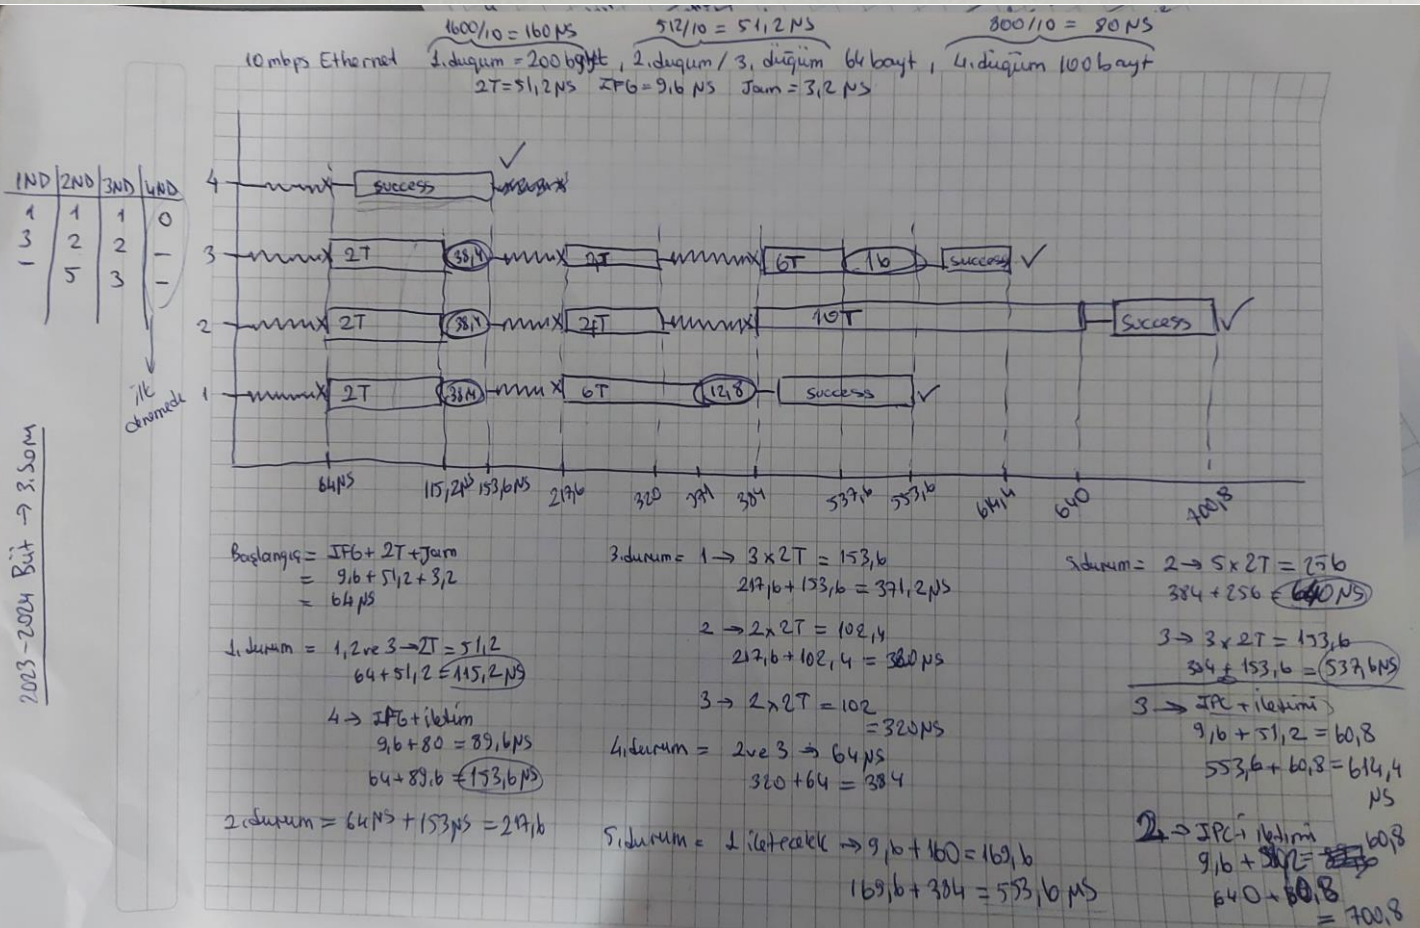 1600/10 = 160 µs
512/10 = 51,2 µs
800/10 = 80 µs
10mbps Ethernet 1.düğüm = 200 bayt, 2.düğüm / 3. düğüm 64 bayt, 4.düğüm 100 bayt
2T = 51,2 µs IFG = 9,6 µs Jam = 3,2 µs
1ND 2ND 3ND 4ND
1 1 1 0
3 2 2 -
- 5 3 -
ilk
denemede
2023-2024 Büt → 3.Soru
4 success ✓
3 2T 38,4 2T 6T 16 success ✓
2 2T 38,4 2T 10T success ✓
1 2T 38,4 6T 12,8 success ✓
64µs 115,2µs 153,6µs 217,6 320 371 384 537,6 553,6 614,4 640 700,8
Başlangıç = IFG + 2T + Jam
= 9,6 + 51,2 + 3,2
= 64 µs
1.durum = 1,2 ve 3 → 2T = 51,2
64 + 51,2 = 115,2 µs
4 → IFG + iletim
9,6 + 80 = 89,6 µs
64 + 89,6 = 153,6 µs
2.durum = 64 µs + 153 µs = 217,6
3.durum = 1 → 3 x 2T = 153,6
217,6 + 153,6 = 371,2 µs
2 → 2 x 2T = 102,4
217,6 + 102,4 = 320 µs
3 → 2 x 2T = 102
= 320 µs
4.durum = 2 ve 3 → 64 µs
320 + 64 = 384
5.durum = 1 iletecek → 9,6 + 160 = 169,6
169,6 + 384 = 553,6 µs
5.durum = 2 → 5 x 2T = 256
384 + 256 = 640 µs
3 → 3 x 2T = 153,6
384 + 153,6 = 537,6 µs
3 → IPG + iletimi
9,6 + 51,2 = 60,8
553,6 + 60,8 = 614,4
µs
2 → IPG + iletimi
9,6 + 51,2 = 60,8
640 + 60,8
= 700,8